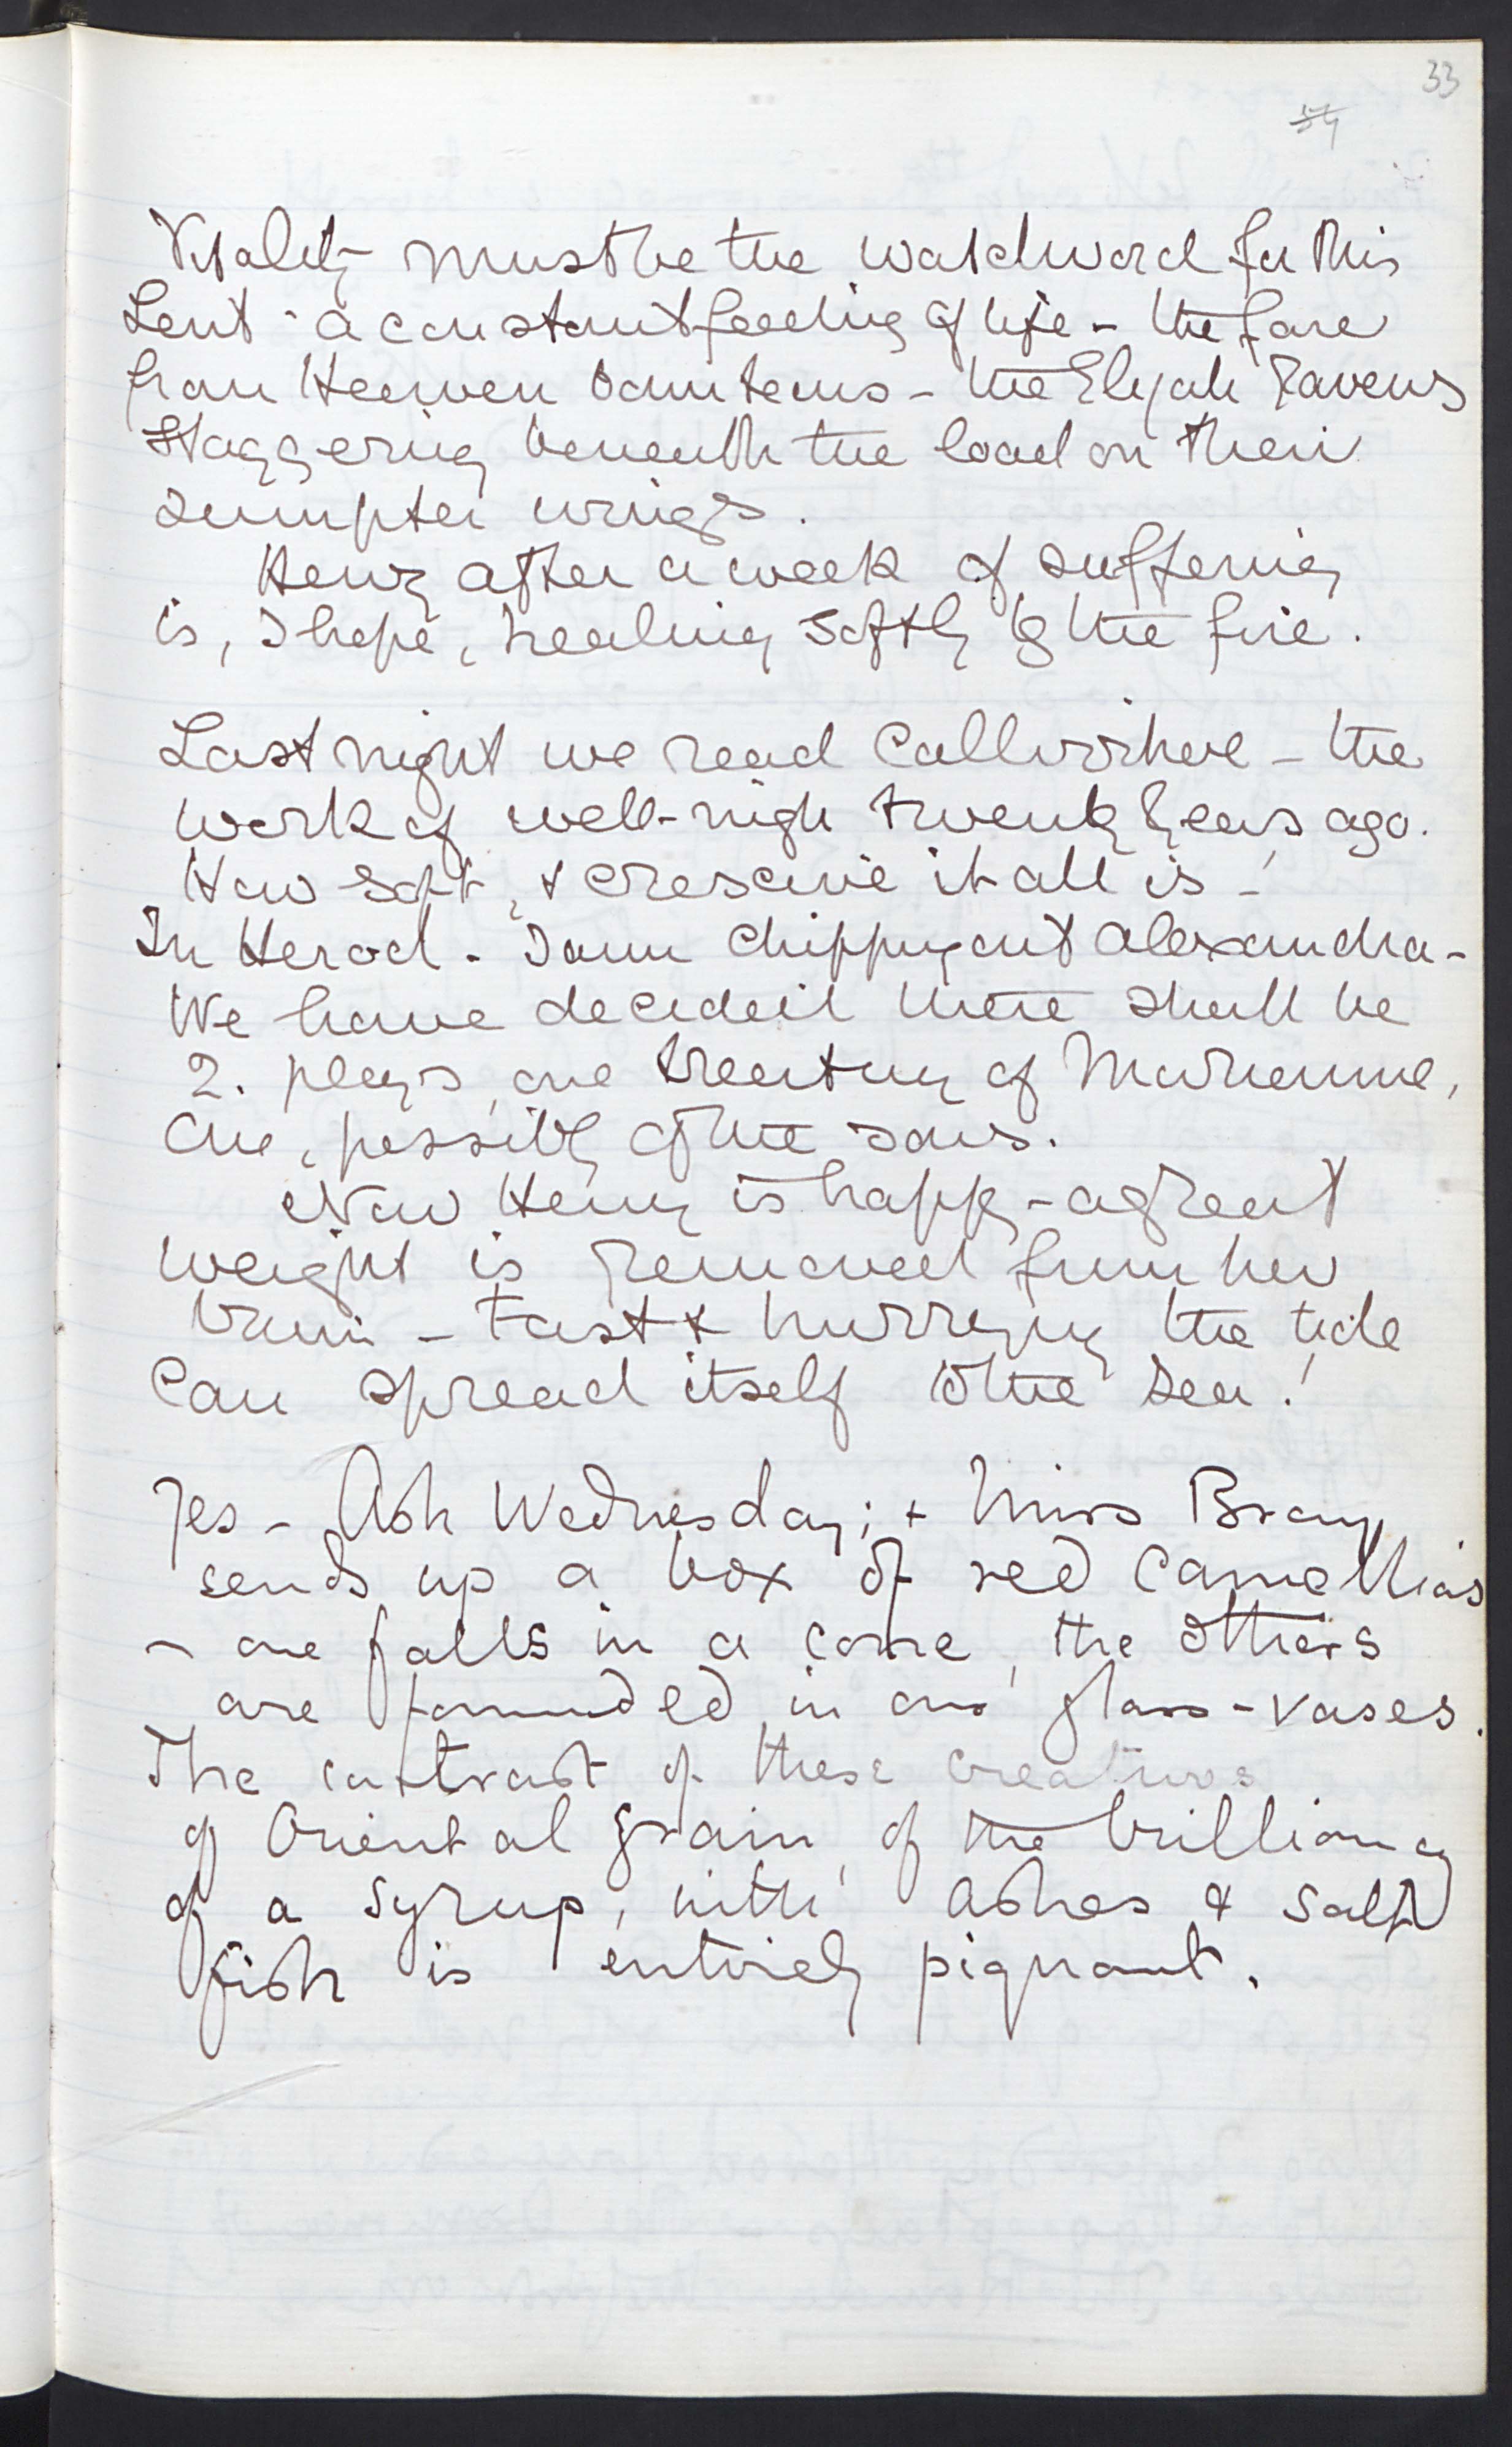 33
54
Vitality must be the watchword for this
Lent - a constant feeling of life - the fare
from Heaven bounteous - the Elijah ravens
staggering beneath the load on their
sumpter wings.
Henry after a week of suffering
is, I hope, healing softly by the fire.
Last night we read Callirrhoë - the
work of well-nigh twenty years ago.
How soft, & crescive it all is -
In Herod - I am chipping out Alexandra -
We have decided there shall be
2. plays, one treating of Mariamne,
one, possibly of the sons.
Now Henry is happy - a great
weight is removed from her
brain - Fast & hurrying the tide
can spread itself to the sea!
Yes - Ash Wednesday; & Miss Bray
sends up a box of red camellias
- one falls in a , the others
are in our glass-vases.
The contrast of these creatures
of Oriental grain, of the brilliancy
of a syrup, with ashes & salt
fish is entirely piquant.